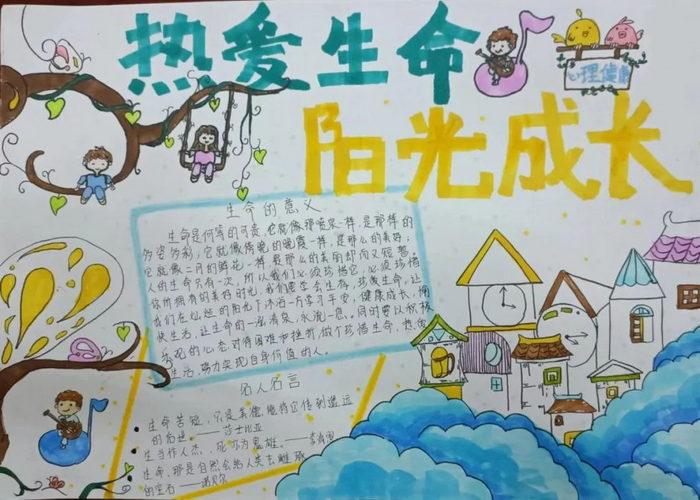 热爱生命
心理健康
阳光成长
生命的意义
生命是何等的可贵,它就像那喷泉一样,是那样的
多姿多彩;它就像傍晚的晚霞一样,是那么的美好;
它就像二月的鲜花一样,是那么的美丽却而又短暂。
人的生命只有一次,所以我们必须珍惜它,必须珍惜
你所拥有的美好时光,我们要学会生存,珍爱生命,让
我们在灿烂的阳光下沐浴一方赤子平安,健康成长,愉
快生活,让生命的一泓清泉,永流一息。同时要以积极
乐观的心态对待困难和挫折,做个珍惜生命,热爱
生活,努力实现自身价值的人。
名人名言
生命苦短,只是美德能将它传到遥远
的后世。——莎士比亚
生当作人杰,死亦为鬼雄。——李清照
生命,那是自然会给人类去雕琢
的宝石——诺贝尔